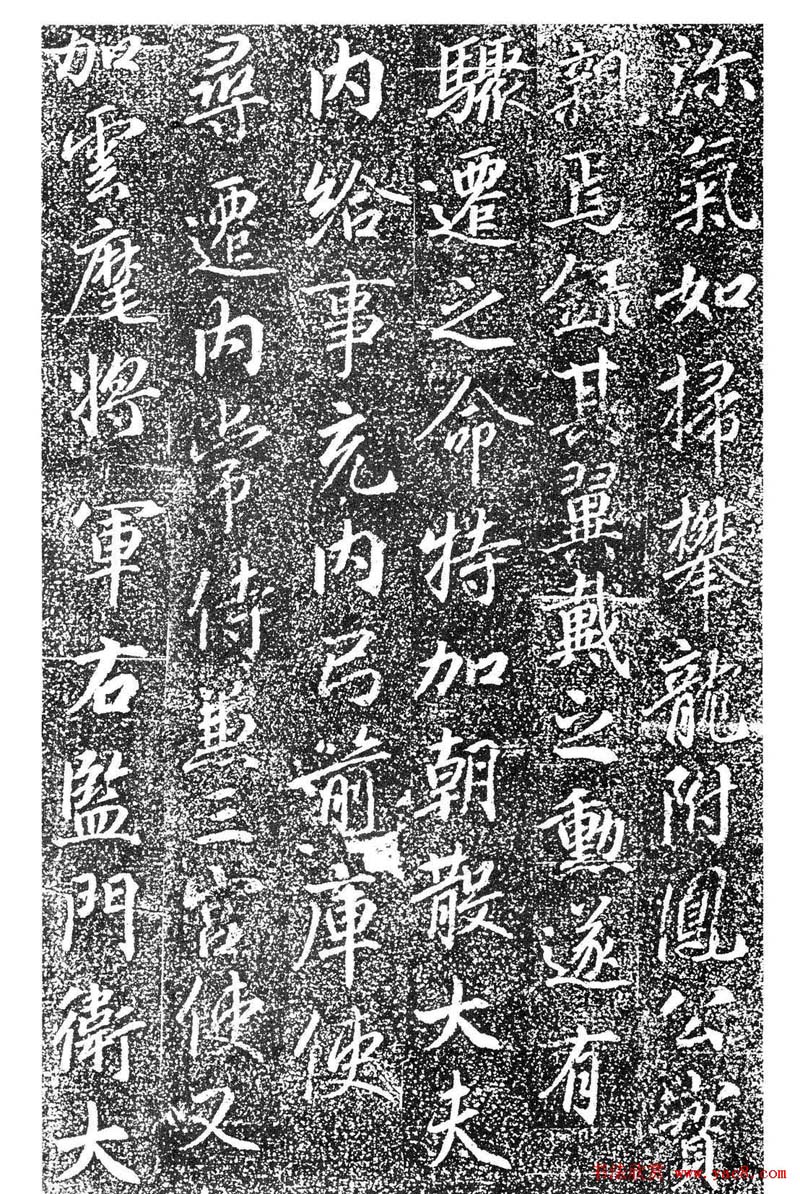 沴氣如掃攀龍附鳳公實
親焉録其翼戴之勳遂有
驟遷之命特加朝散大夫
内給事充内弓箭庫使
尋遷内常侍兼三宮使又
加雲麾將軍右監門衛大
书法欣赏 www.yac8.com